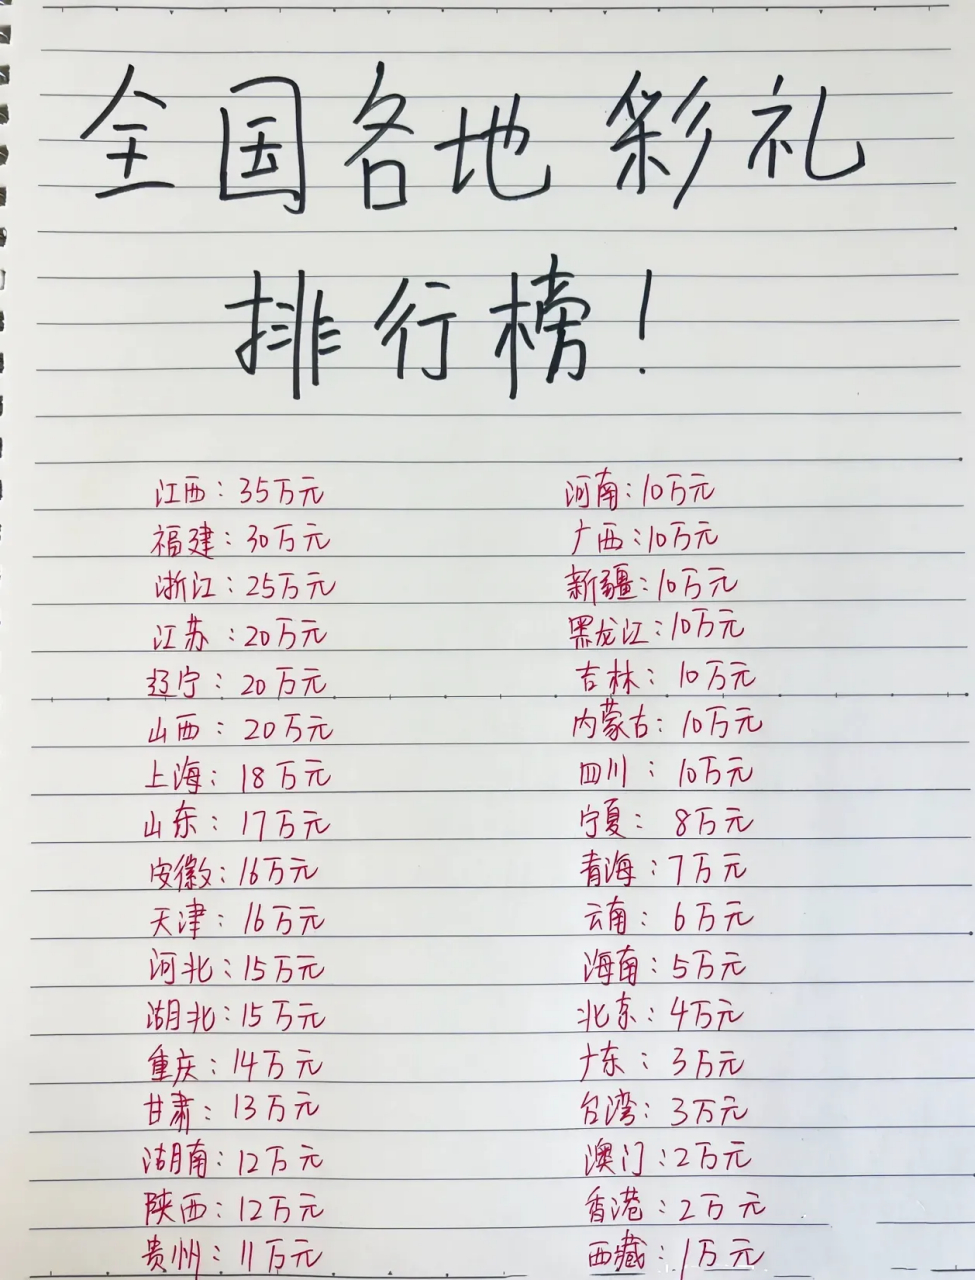 全国各地彩礼
排行榜!
江西：35万元
福建：30万元
浙江：25万元
江苏：20万元
辽宁：20万元
山西：20万元
上海：18万元
山东：17万元
安徽：16万元
天津：16万元
河北：15万元
湖北：15万元
重庆：14万元
甘肃：13万元
湖南：12万元
陕西：12万元
贵州：11万元
河南：10万元
广西：10万元
新疆：10万元
黑龙江：10万元
吉林：10万元
内蒙古：10万元
四川：10万元
宁夏：8万元
青海：7万元
云南：6万元
海南：5万元
北京：4万元
广东：3万元
台湾：3万元
澳门：2万元
香港：2万元
西藏：1万元